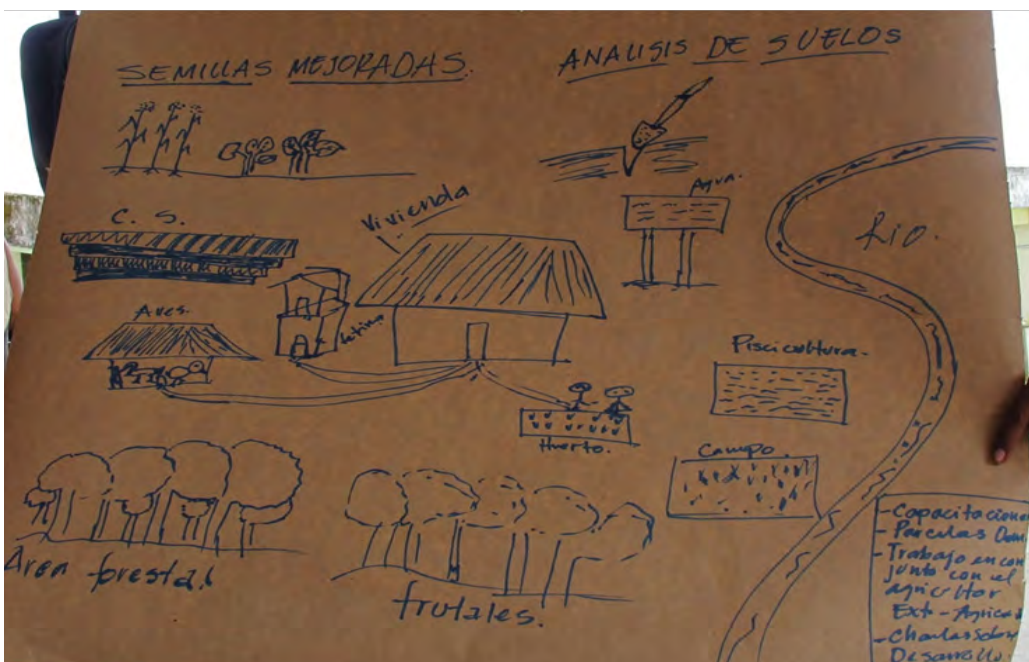 SEMILLAS MEJORADAS.
ANALISIS DE SUELOS
C. S.
Vivienda
Agua.
Rio.
Aves.
Letrina
Piscicultura.
Huerto.
Campo.
Area forestal
frutales.
- Capacitacion
- Parcelas Dem
- Trabajo en con
junto con el
agricultor
Ext - Agrico
- Charlas sobre
Desarrollo.